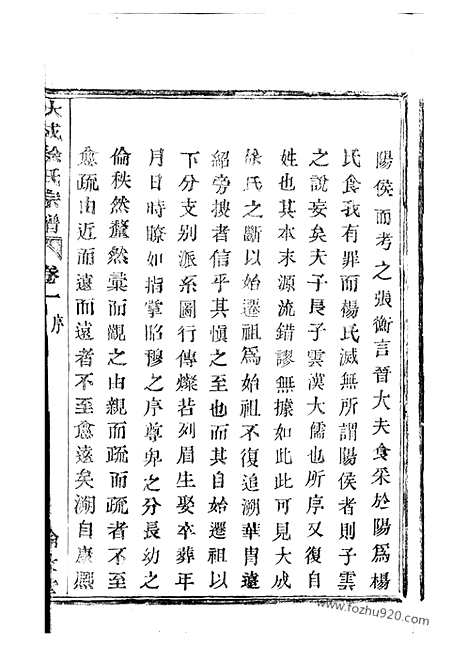 陽侯而考之張衡言晉大夫食采於陽爲楊
氏食我有罪而楊氏滅無所謂陽侯者則子雲
之說妄矣夫子長子雲漢大儒也所序又復自
姓也其本末源流錯謬無據如此此可見大成
徐氏之斷以始遷祖爲始祖不復追溯華胄遠
紹旁搜者信乎其愼之至也而其自始遷祖以
下分支别派系圖行傳燦若列眉生娶卒葬年
月日時瞭如指掌昭穆之序尊卑之分長幼之
倫秩然釐然彙而觀之由親而疏而疏者不至
愈疏由近而遠而遠者不至愈遠矣溯自康熙
大成徐氏宗譜
卷一
序
www.fozhu920.com